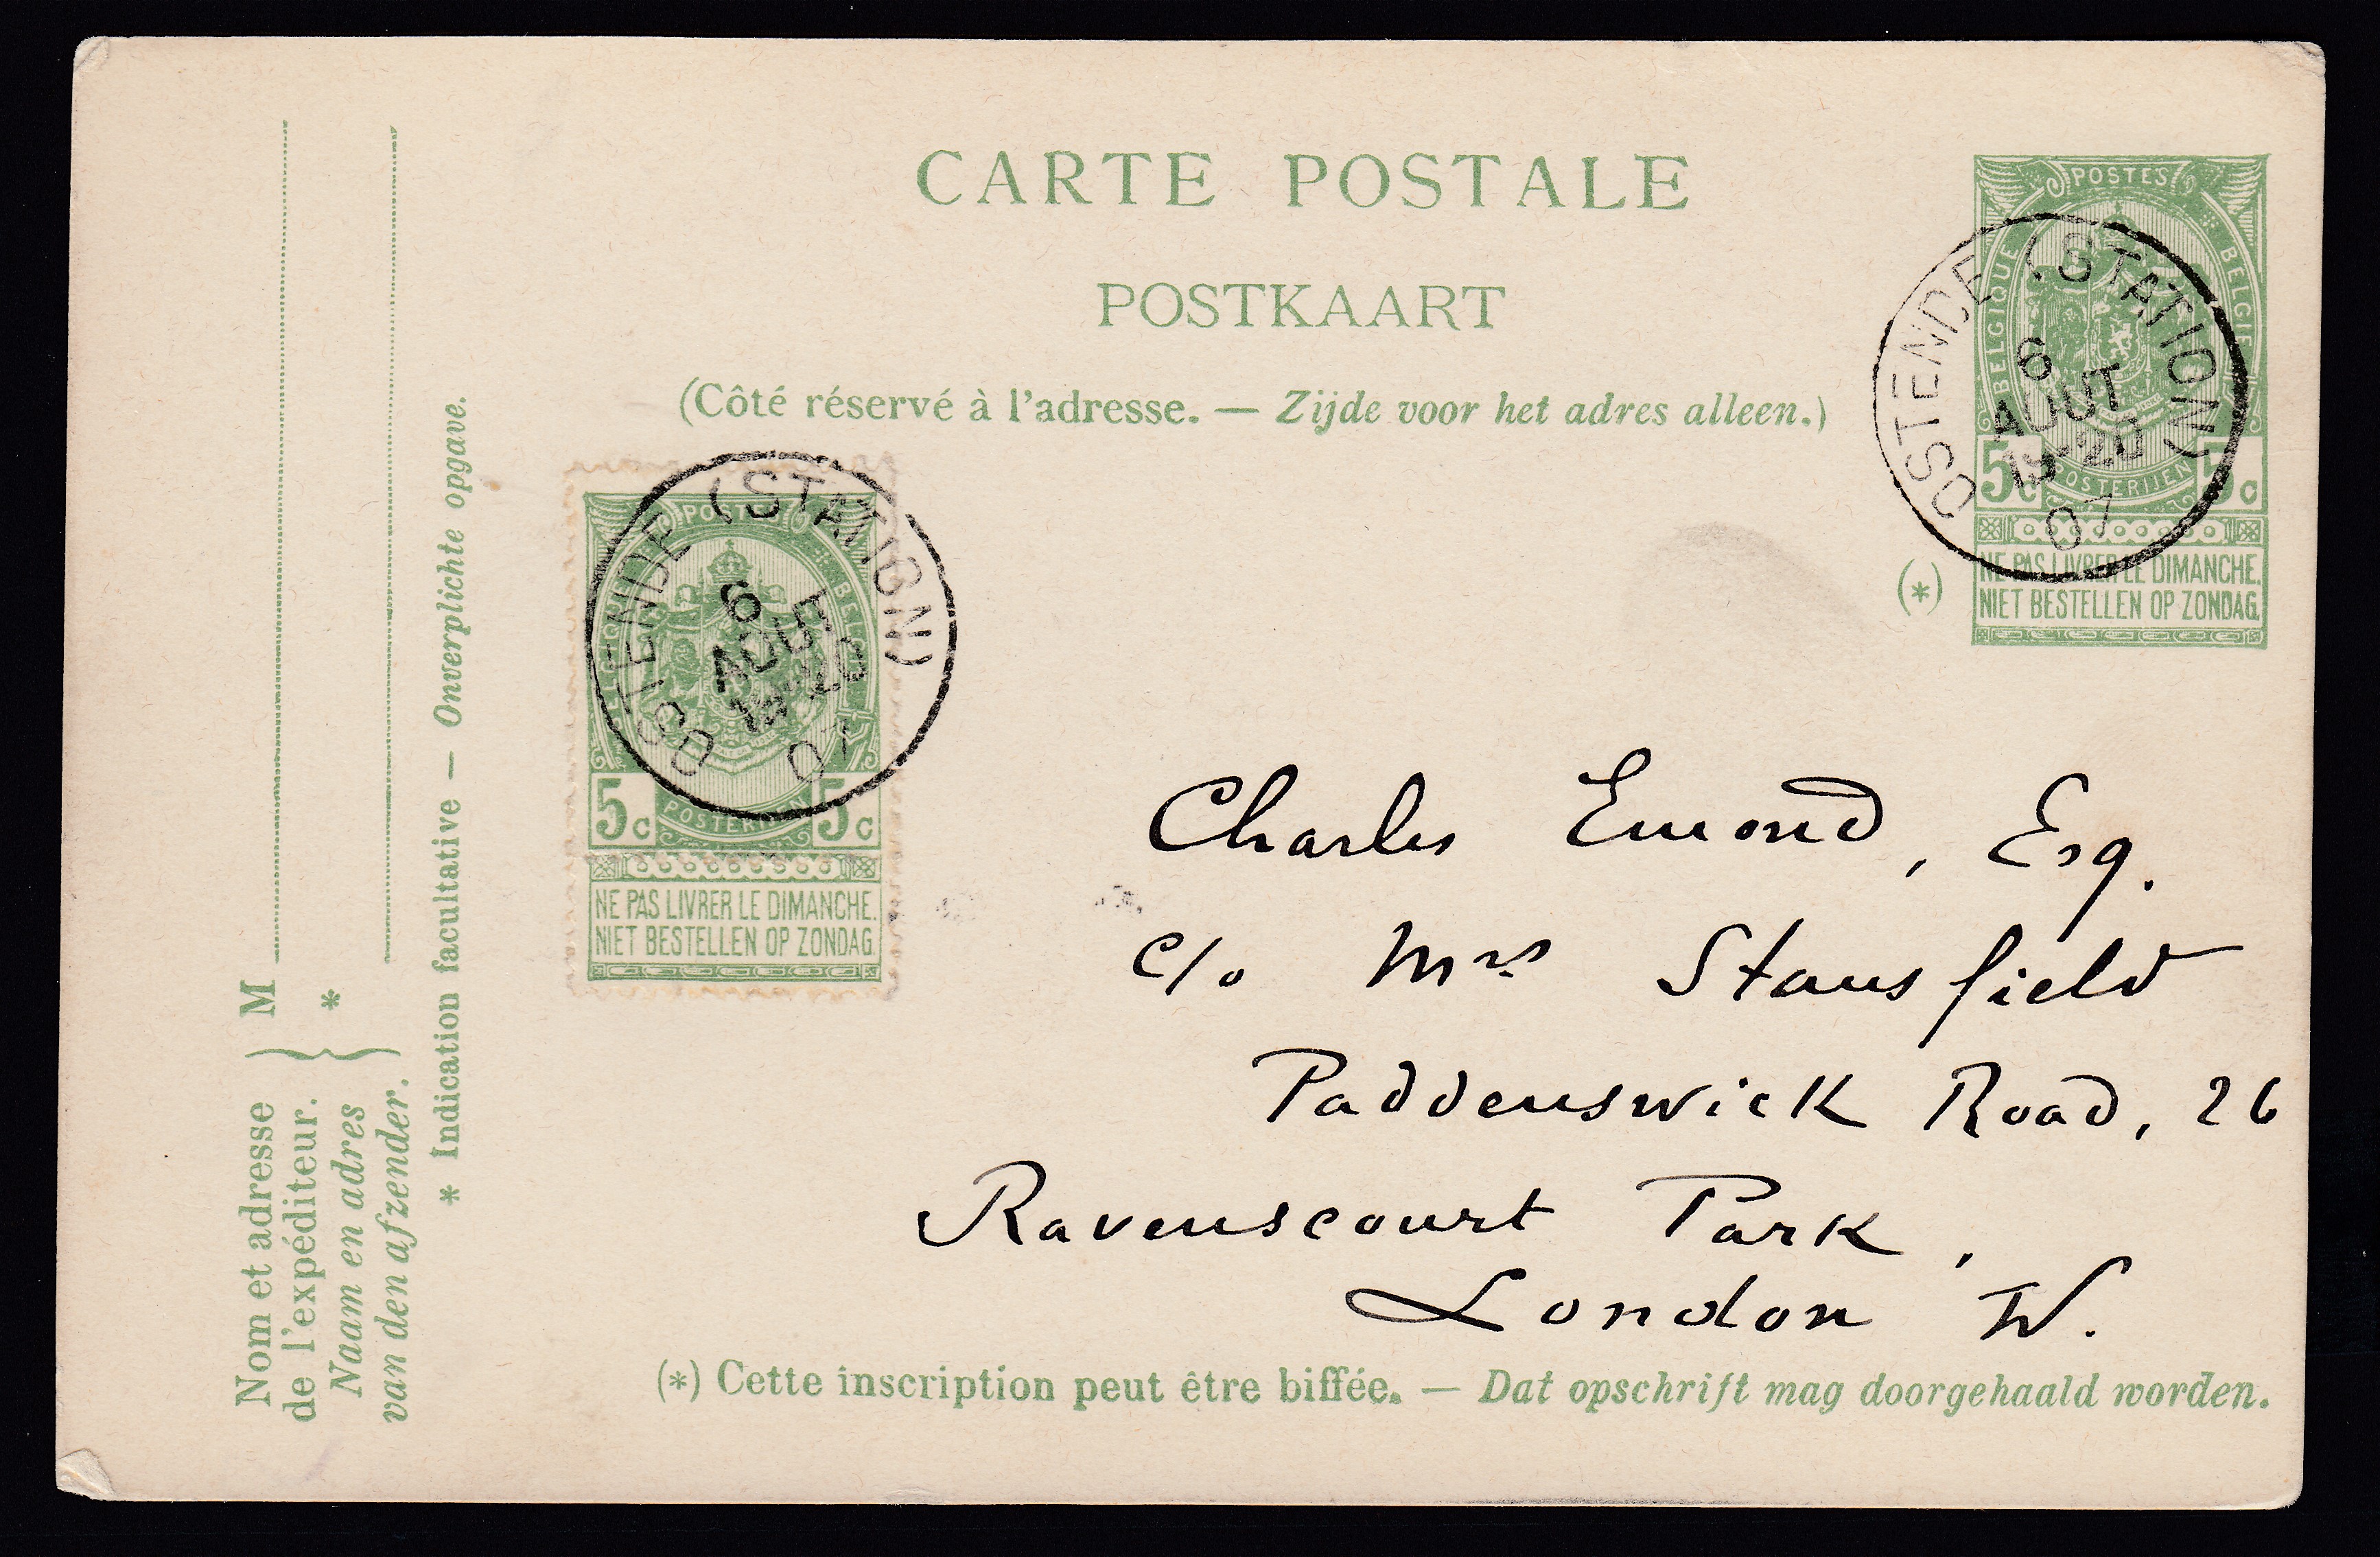 CARTE POSTALE
POSTKAART
(Côté réservé à l'adresse. — Zijde voor het adres alleen.)
POSTES
BELGIQUE
BELGIE
5c
POSTERIJEN
5c
NE PAS LIVRER LE DIMANCHE.
NIET BESTELLEN OP ZONDAG.
(*)
OSTENDE (STATION)
6
AOUT
19-20
07
POSTES
5c
POSTERIJEN
5c
NE PAS LIVRER LE DIMANCHE.
NIET BESTELLEN OP ZONDAG.
OSTENDE (STATION)
6
AOUT
19-20
07
Charles Emond, Esq.
c/o Mrs Stansfield
Paddenswick Road, 26
Ravenscourt Park,
London W.
(*) Cette inscription peut être biffée. — Dat opschrift mag doorgehaald worden.
Nom et adresse
de l'expéditeur.
Naam en adres
van den afzender.
M
*
* Indication facultative — Onverplichte opgave.